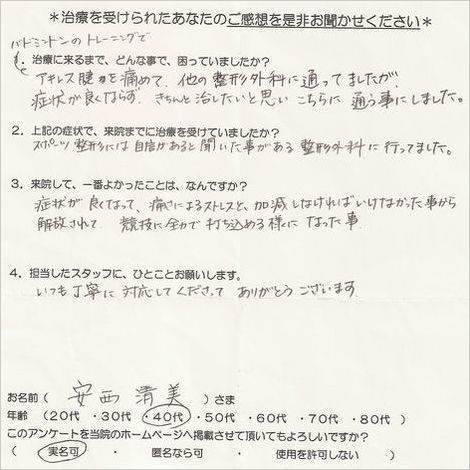 ＊治療を受けられたあなたのご感想を是非お聞かせください＊
バドミントンのトレーニングで
1．治療に来るまで、どんな事で、困っていましたか？
アキレス腱を痛めて、他の整形外科に通ってましたが、
症状が良くならず、きちんと治したいと思い こちらに 通う事にしました。
2．上記の症状で、来院までに治療を受けていましたか？
スポーツ整形には自信があると聞いた事がある 整形外科に行ってました。
3．来院して、一番よかったことは、なんですか？
症状が良くなって、痛さによるストレスと、加減しなければいけなかった事から
解放されて、競技に全力で打ち込める様になった事
4．担当したスタッフに、ひとことお願いします。
いつも丁寧に対応してくださって ありがとうございます。
お名前（ 安西 清美 ）さま
年齢（ 20代 ・30代 ・40代 ・50代 ・60代 ・70代 ・80代 ）
このアンケートを当院のホームページへ掲載させて頂いてもよろしいですか？
（ 実名可 ・ 匿名なら可 ・ 使用を許可しない ）